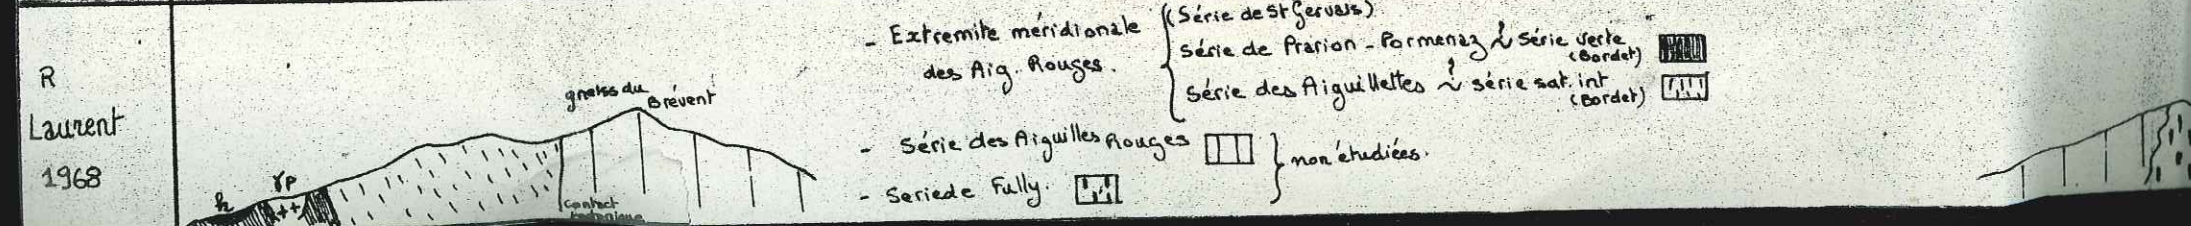 R
Laurent
1968
h
γp
++
gneiss du
Brévent
contact
tectonique
- Extremite méridionale
des Aig. Rouges.
(Série de St Gervais)
Série de Prarion - Pormenaz ~ Série verte
(Bordet)
Série des Aiguillettes ~ série sat. int
(Bordet)
- Série des Aiguilles Rouges
- Serie de Fully.
non étudiées.